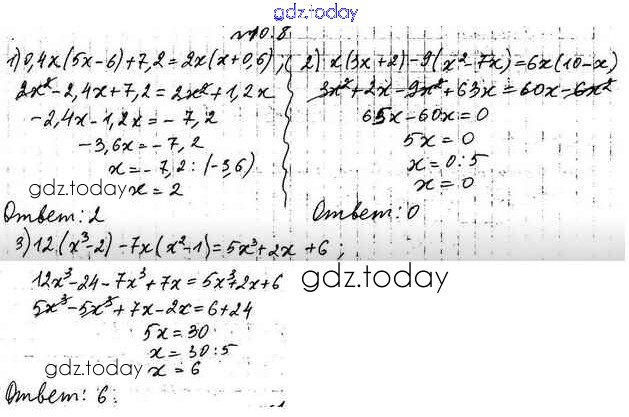 gdz.today
№10.8
1) 0,4x(5x-6)+7,2=2x(x+0,6);
2x²-2,4x+7,2=2x²+1,2x
-2,4x-1,2x=-7,2
-3,6x=-7,2
x=-7,2:(-3,6)
gdz.today x=2
Ответ: 2
2) x(3x+2)-9(x²-7x)=6x(10-x)
3x²+2x-9x²+63x=60x-6x²
65x-60x=0
5x=0
x=0:5
x=0
Ответ: 0
3) 12(x³-2)-7x(x²-1)=5x³+2x+6;
12x³-24-7x³+7x=5x³+2x+6
gdz.today
5x³-5x³+7x-2x=6+24
5x=30
x=30:5
gdz.today x=6
Ответ: 6.